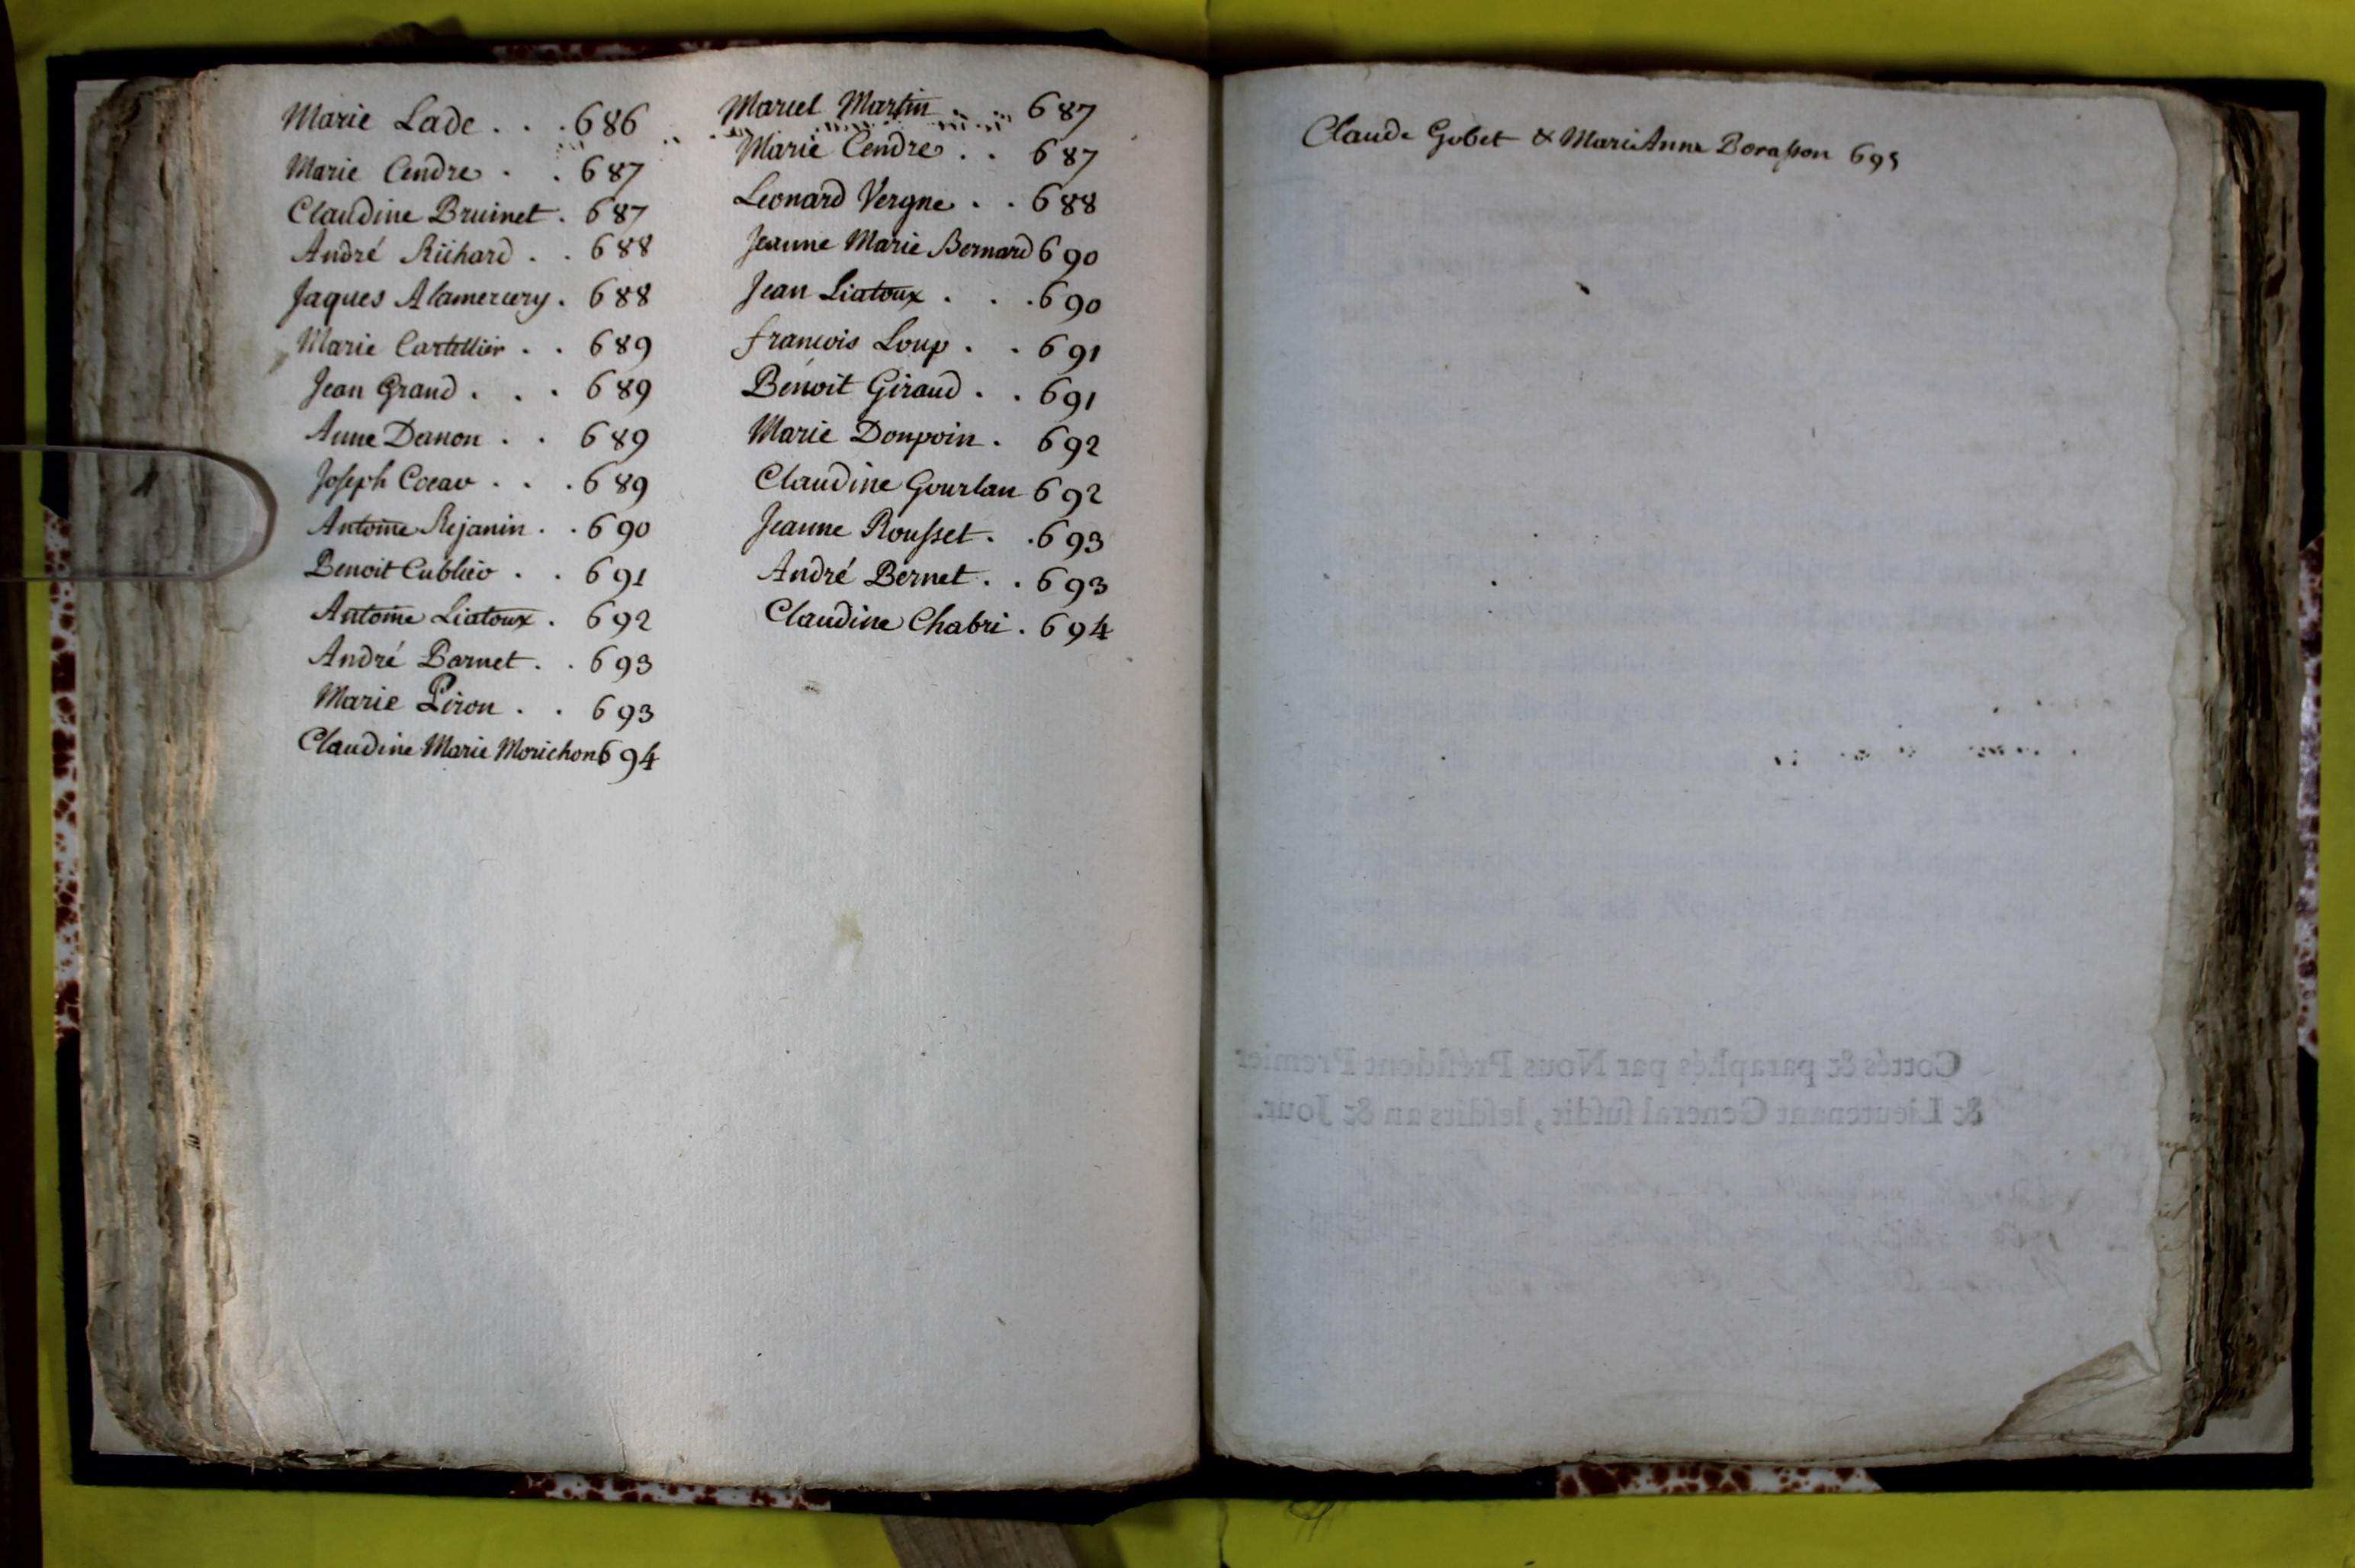 Marie Lade . . . 686
Marie Cendre . . 687
Claudine Bruinet . 687
André Richard . . 688
Jaques Alamercery . 688
Marie Cartellier . . 689
Jean Grand . . . 689
Anne Danon . . 689
Joseph . . . 689
Antoine Rejanin . . 690
Benoit Cublieo . . 691
Antoine Liatoux . 692
André Barnet . . 693
Marie Piron . . 693
Claudine Marie Morichon 694
Marcel Martin . . . 687
Marie Cendre . . 687
Leonard Vergne . . 688
Jeanne Marie Bernard 690
Jean Liatoux . . . 690
francois Loup . . 691
Benoit Giraud . . 691
Marie Donpoin . 692
Claudine Gourlan 692
Jeanne Rousset . . 693
André Bernet . . 693
Claudine Chabri . 694
Claude Gobet & Marie Anne Borasson 695
Cottés & paraphés par Nous Président Premier
& Lieutenant General susdit, lesdits an & Jour.